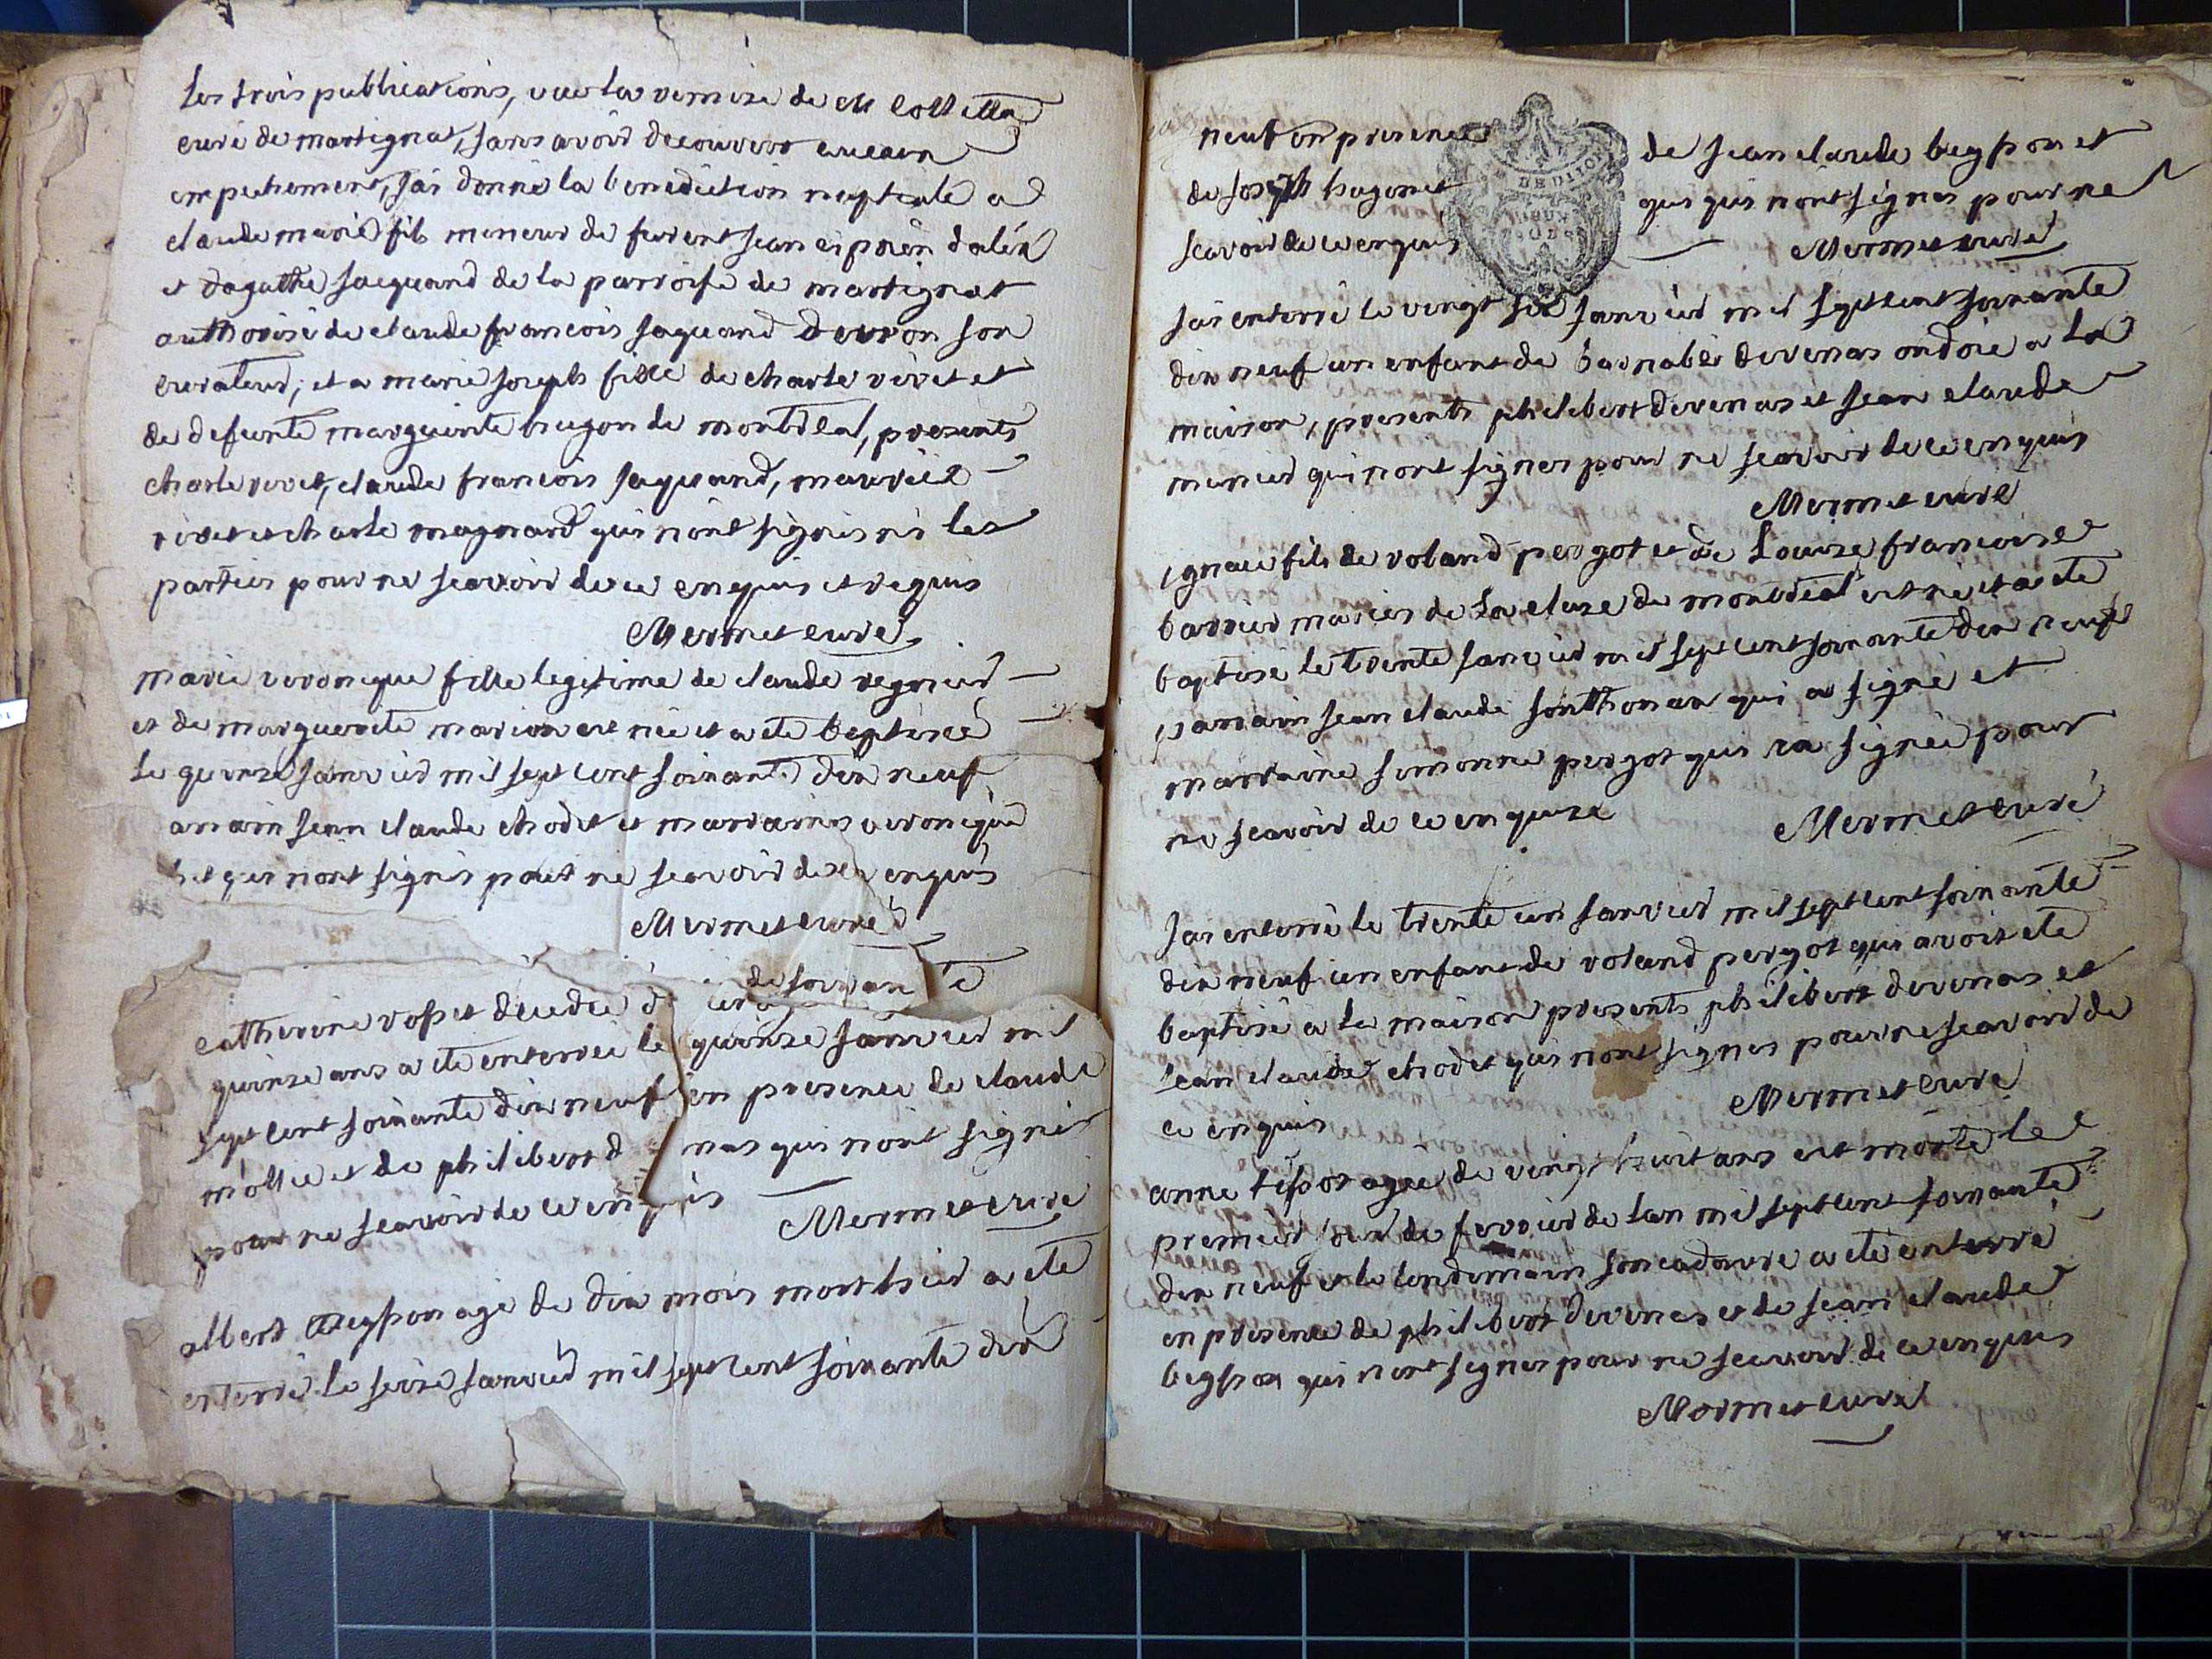 les trois publications, vue la remise de M Colletta
curé de martignat, sans avoir decouvert aucun
empechement, jai donné la benediction nuptiale a
claude marie fils mineur de furent jean
et dagathe jacquand de la parroisse de martignat
authorisé de claude francois jaquand son
curateur, et a marie joseph fille de charle vivet et
de defunte marguerite hugon de montreal, presents
charle vivet, claude francois jaquand,
vivet et charle magnard qui nont signés ni les
parties pour ne scavoir de ce enquis et requis
Mermet curé
marie veronique fille legitime de claude regnier
et de marguerite marion est née et a ete baptisee
le quinze janvier mil sept cent soixante dix neuf
arain jean claude chodet et marraine veronique
et qui nont signés pour ne scavoir de ce enquis
Mermet curé
de soixante
catherine rosset decedee
quinze ans a ete enterree le quinze janvier mil
sept cent soixante dix neuf en presence de claude
et de philibert d nas qui nont signé
pour ne scavoir de ce enquis
Mermet curé
albert agé de dix mois mort hier a ete
enterré le seize janvier mil sept cent soixante dix
neuf en presence de jean claude begpon et
de joseph hugonet qui nont signes pour ne
scavoir de ce enquis Mermet curé
jai enterré le vingt six janvier mil sept cent soixante
dix neuf un enfant de barnabé devenas ondoié a la
maison, presents philibert devenas et jean claude
qui nont signes pour ne scavoir de ce enquis
Mermet curé
ignace fils de roland pergot et de Louise francoise
barrier mariés de la cluse de montreal est né et a ete
baptisé le trente janvier mil sept cent soixante dix neuf
parrain jean claude sonthonax qui a signé et
marraine simonne pergot qui na signée pour
ne scavoir de ce enquise Mermet curé
jai enterré le trente un janvier mil sept cent soixante
dix neuf un enfant de roland pergot qui avoit ete
baptisé a la maison presents philibert devenas et
jean claude chodet qui nont signes pour ne scavoir de
ce enquis Mermet curé
anne tissot agée de vingt huit ans est morte le
premier jour de fevrier de lan mil sept cent soixante
dix neuf et le lendemain son cadavre a ete enterré
en presence de philibert devenas et de jean claude
begpon qui nont signes pour ne scavoir de ce enquis
Mermet curé